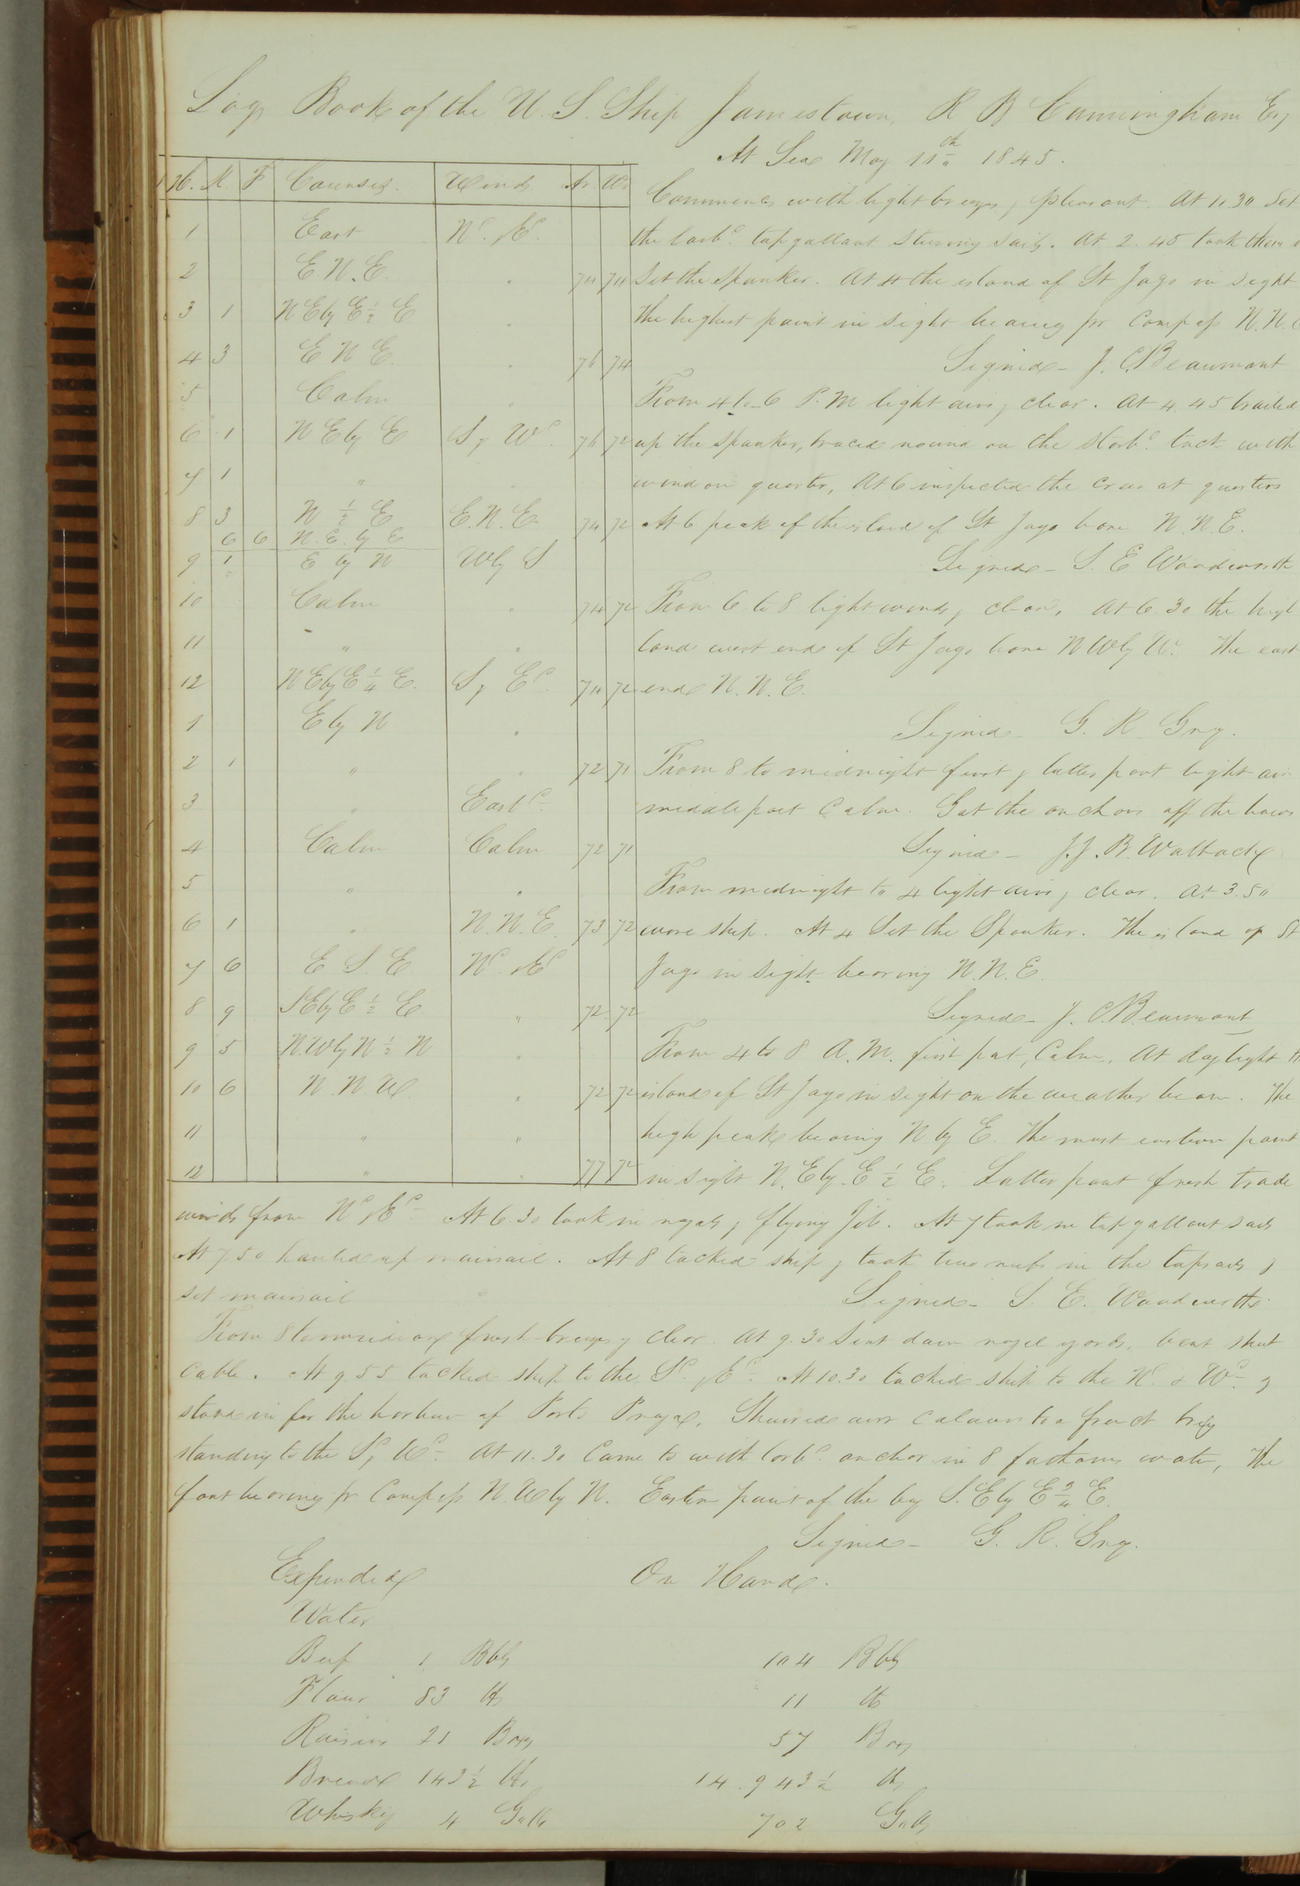 Log Book of the U. S. Ship Jamestown, R B Cunningham Esq
At Sea May 11th 1845.
H. K. F Courses. Winds Ar. Wr.
1 East Nd. & Ed.
2 E N. E. " 74 74
3 1 N E by E ½ E "
4 3 E N E. " 76 74
5 Calm "
6 1 N E by E S & Wd. 76 72
7 1 " "
8 3 N ½ E E. N. E. 74 72
6 6 N. E. by E
9 1 E by N W by S
10 Calm " 74 72
11 " "
12 N E by E ¼ E. S & Ed. 74 72
1 E by N "
2 1 " " 72 71
3 " Eastd
4 Calm Calm 72 71
5 " "
6 1 " N. N. E. 73 72
7 6 E S. E Nd. & Ed
8 9 S E by E ½ E " 72 72
9 5 N. W by N ½ N "
10 6 N. N W. " 72 72
11 " "
12 " " 77 72
Commences with light breezes & pleasant. At 1.30 Set
the larbd. top gallant Steering sails. At 2.45 took them
Set the Spanker. At 4 the island of St Jago in sight
the highest point in sight bearing pr Compass N. N.
Signed - J. C. Beaumont
From 4 to 6 P. M light airs & clear. At 4.45 brailed
up the Spanker, braced round on the Starbd. tack with
wind on quarter, At 6 inspected the crew at quarters
At 6 peak of the island of St Jago bore N. N. E.
Signed - S. E Woodworth
From 6 to 8 light winds & clear, At 6.30 the high
land west end of St Jago bore N W by W. The east
end N. N. E.
Signed - G. R. Gray.
From 8 to midnight first & latter part light air
middle part Calm. Got the anchors off the bows
Signed - J. J. B. Walbach
From midnight to 4 light airs & clear. At 3.50
wore ship. At 4 Set the Spanker. The island of St
Jago in sight bearing N. N. E.
Signed - J. C. Beaumont
From 4 to 8 A. M. first part, Calm. At daylight th
island of St Jago in sight on the weather beam. The
high peak bearing N by E. The most eastern point
in sight N. E by. E ½ E. Latter part fresh trade
winds from Nd. & Ed. At 6.30 took in royals & flying Jib. At 7 took in top gallant sails
At 7.50 hauled up mainsail. At 8 tacked ship & took two reefs in the topsails &
set mainsail
Signed - S. E. Woodworth.
From 8 to meridian fresh breezes & clear. At 9.30 Sent down royal yards, bent sheet
Cable. At 9.55 tacked ship to the Sd. & Ed. At 10.30 tacked ship to the Nd. & Wd. &
stood in for the harbour of Porto Praya, Showed our colours to a french brig
standing to the Sd & Wd. At 11.30 Came to with larbd. anchor in 8 fathoms water, The
fort bearing pr Compass N. W by N. Eastern point of the bay S. E by E ¾ E.
Signed - G. R. Gray.
Expended On Hand.
Water
Beef 1 Bbls 104 Bbls
Flour 83 lbs 11 lb
Raisins 21 Boxs 57 Boxs
Bread 143 ½ lbs 14.943 ½ lbs
Whisky 4 Galls 702 Galls